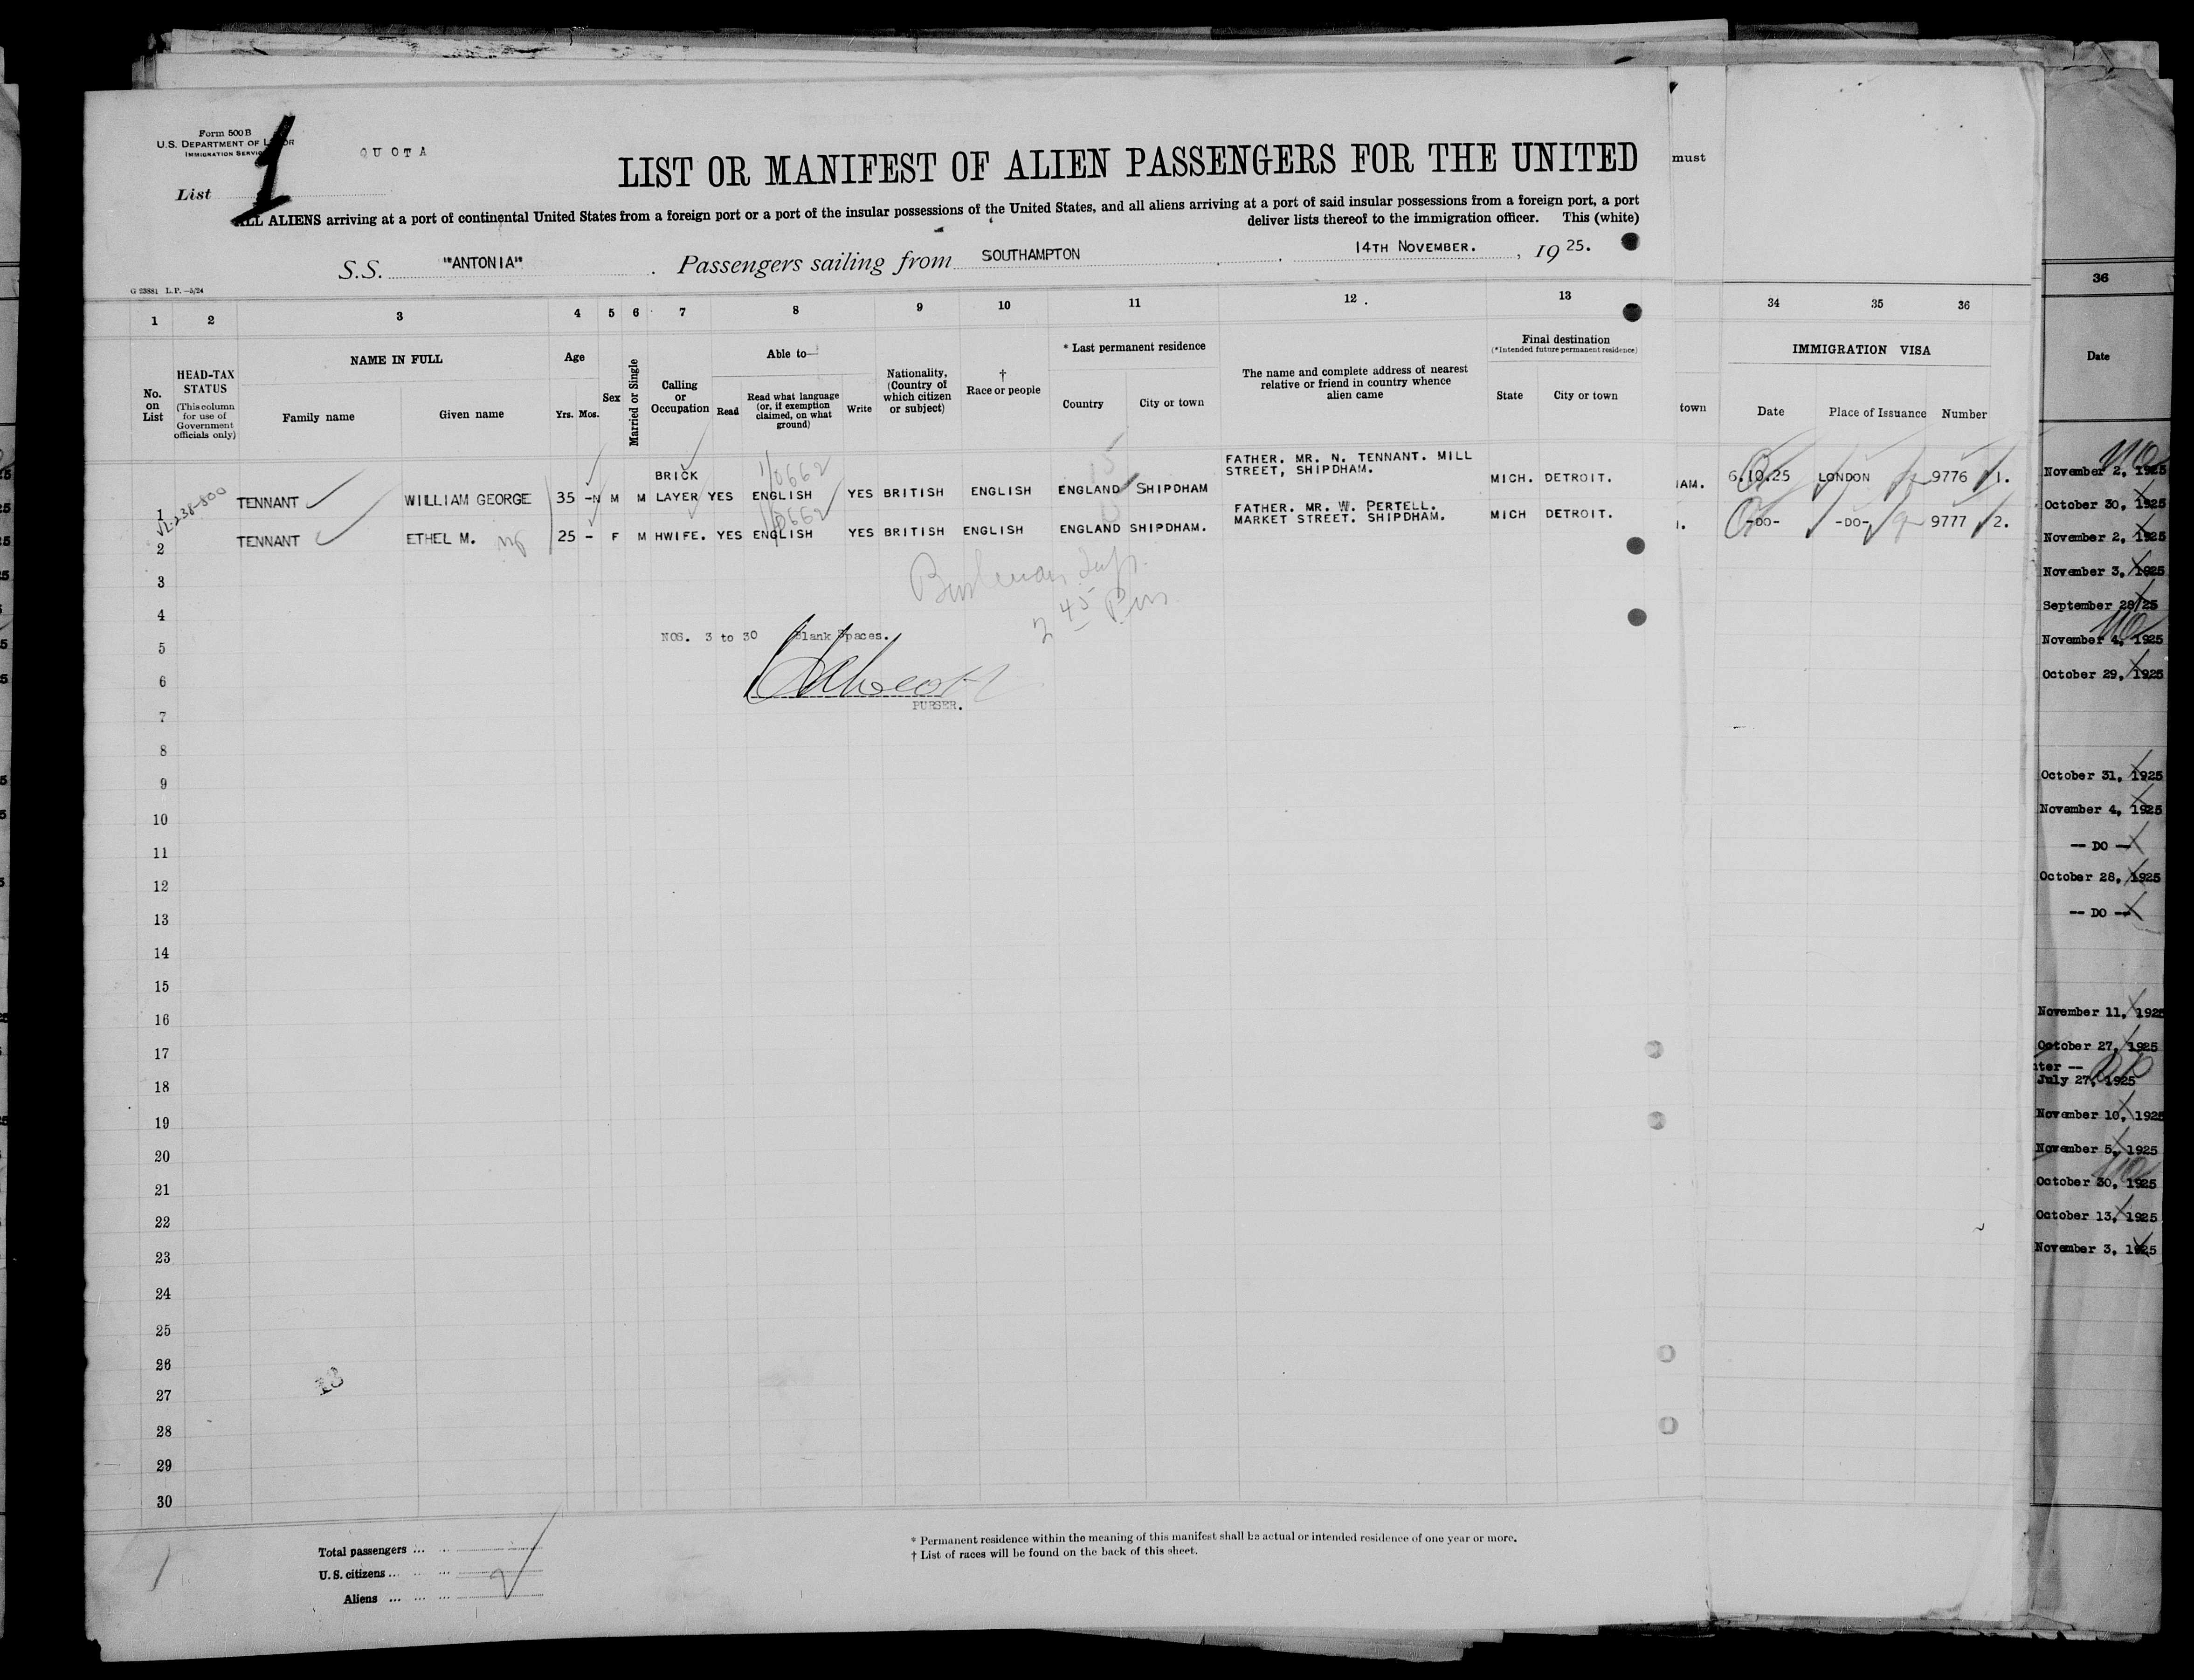 Form 500 B
U.S. DEPARTMENT OF LABOR
IMMIGRATION SERVICE
QUOTA
List 1
LIST OR MANIFEST OF ALIEN PASSENGERS FOR THE UNITED
must
ALL ALIENS arriving at a port of continental United States from a foreign port or a port of the insular possessions of the United States, and all aliens arriving at a port of said insular possessions from a foreign port, a port
deliver lists thereof to the immigration officer. This (white)
S.S. "ANTONIA" Passengers sailing from SOUTHAMPTON, 14TH NOVEMBER., 1925.
G 23881 L.P.—5/24
1 2 3 4 5 6 7 8 9 10 11 12 13 34 35 36
No. on List
HEAD-TAX STATUS (This column for use of Government officials only)
NAME IN FULL
Family name Given name
Age
Yrs. Mos.
Sex
Married or Single
Calling or Occupation
Able to—
Read Read what language (or, if exemption claimed, on what ground) Write
Nationality, (Country of which citizen or subject)
† Race or people
* Last permanent residence
Country City or town
The name and complete address of nearest relative or friend in country whence alien came
Final destination
(*Intended future permanent residence)
State City or town
town
IMMIGRATION VISA
Date Place of Issuance Number
1 TENNANT WILLIAM GEORGE 35 - M M BRICK LAYER YES ENGLISH YES BRITISH ENGLISH ENGLAND SHIPDHAM FATHER. MR. N. TENNANT. MILL STREET, SHIPDHAM. MICH. DETROIT. IAM. 6.10.25 LONDON 9776 1.
1/0662
2 TENNANT ETHEL M. 25 - F M HWIFE. YES ENGLISH YES BRITISH ENGLISH ENGLAND SHIPDHAM. FATHER. MR. W. PERTELL. MARKET STREET. SHIPDHAM. MICH DETROIT. -DO- -DO- 9777 2.
1/0662
3
4
2 45
NOS. 3 to 30 Blank Spaces.
5
6
PURSER.
7
8
9
10
11
12
13
14
15
16
17
18
19
20
21
22
23
24
25
26
27
28
29
30
Total passengers
U.S. citizens
Aliens
* Permanent residence within the meaning of this manifest shall be actual or intended residence of one year or more.
† List of races will be found on the back of this sheet.
36
Date
November 2, 1925
October 30, 1925
November 2, 1925
November 3, 1925
September 28/25
November 4, 1925
October 29, 1925
October 31, 1925
November 4, 1925
-- DO --
October 28, 1925
-- DO --
November 11, 1925
October 27, 1925
July 27, 1925
November 10, 1925
November 5, 1925
October 30, 1925
October 13, 1925
November 3, 1925